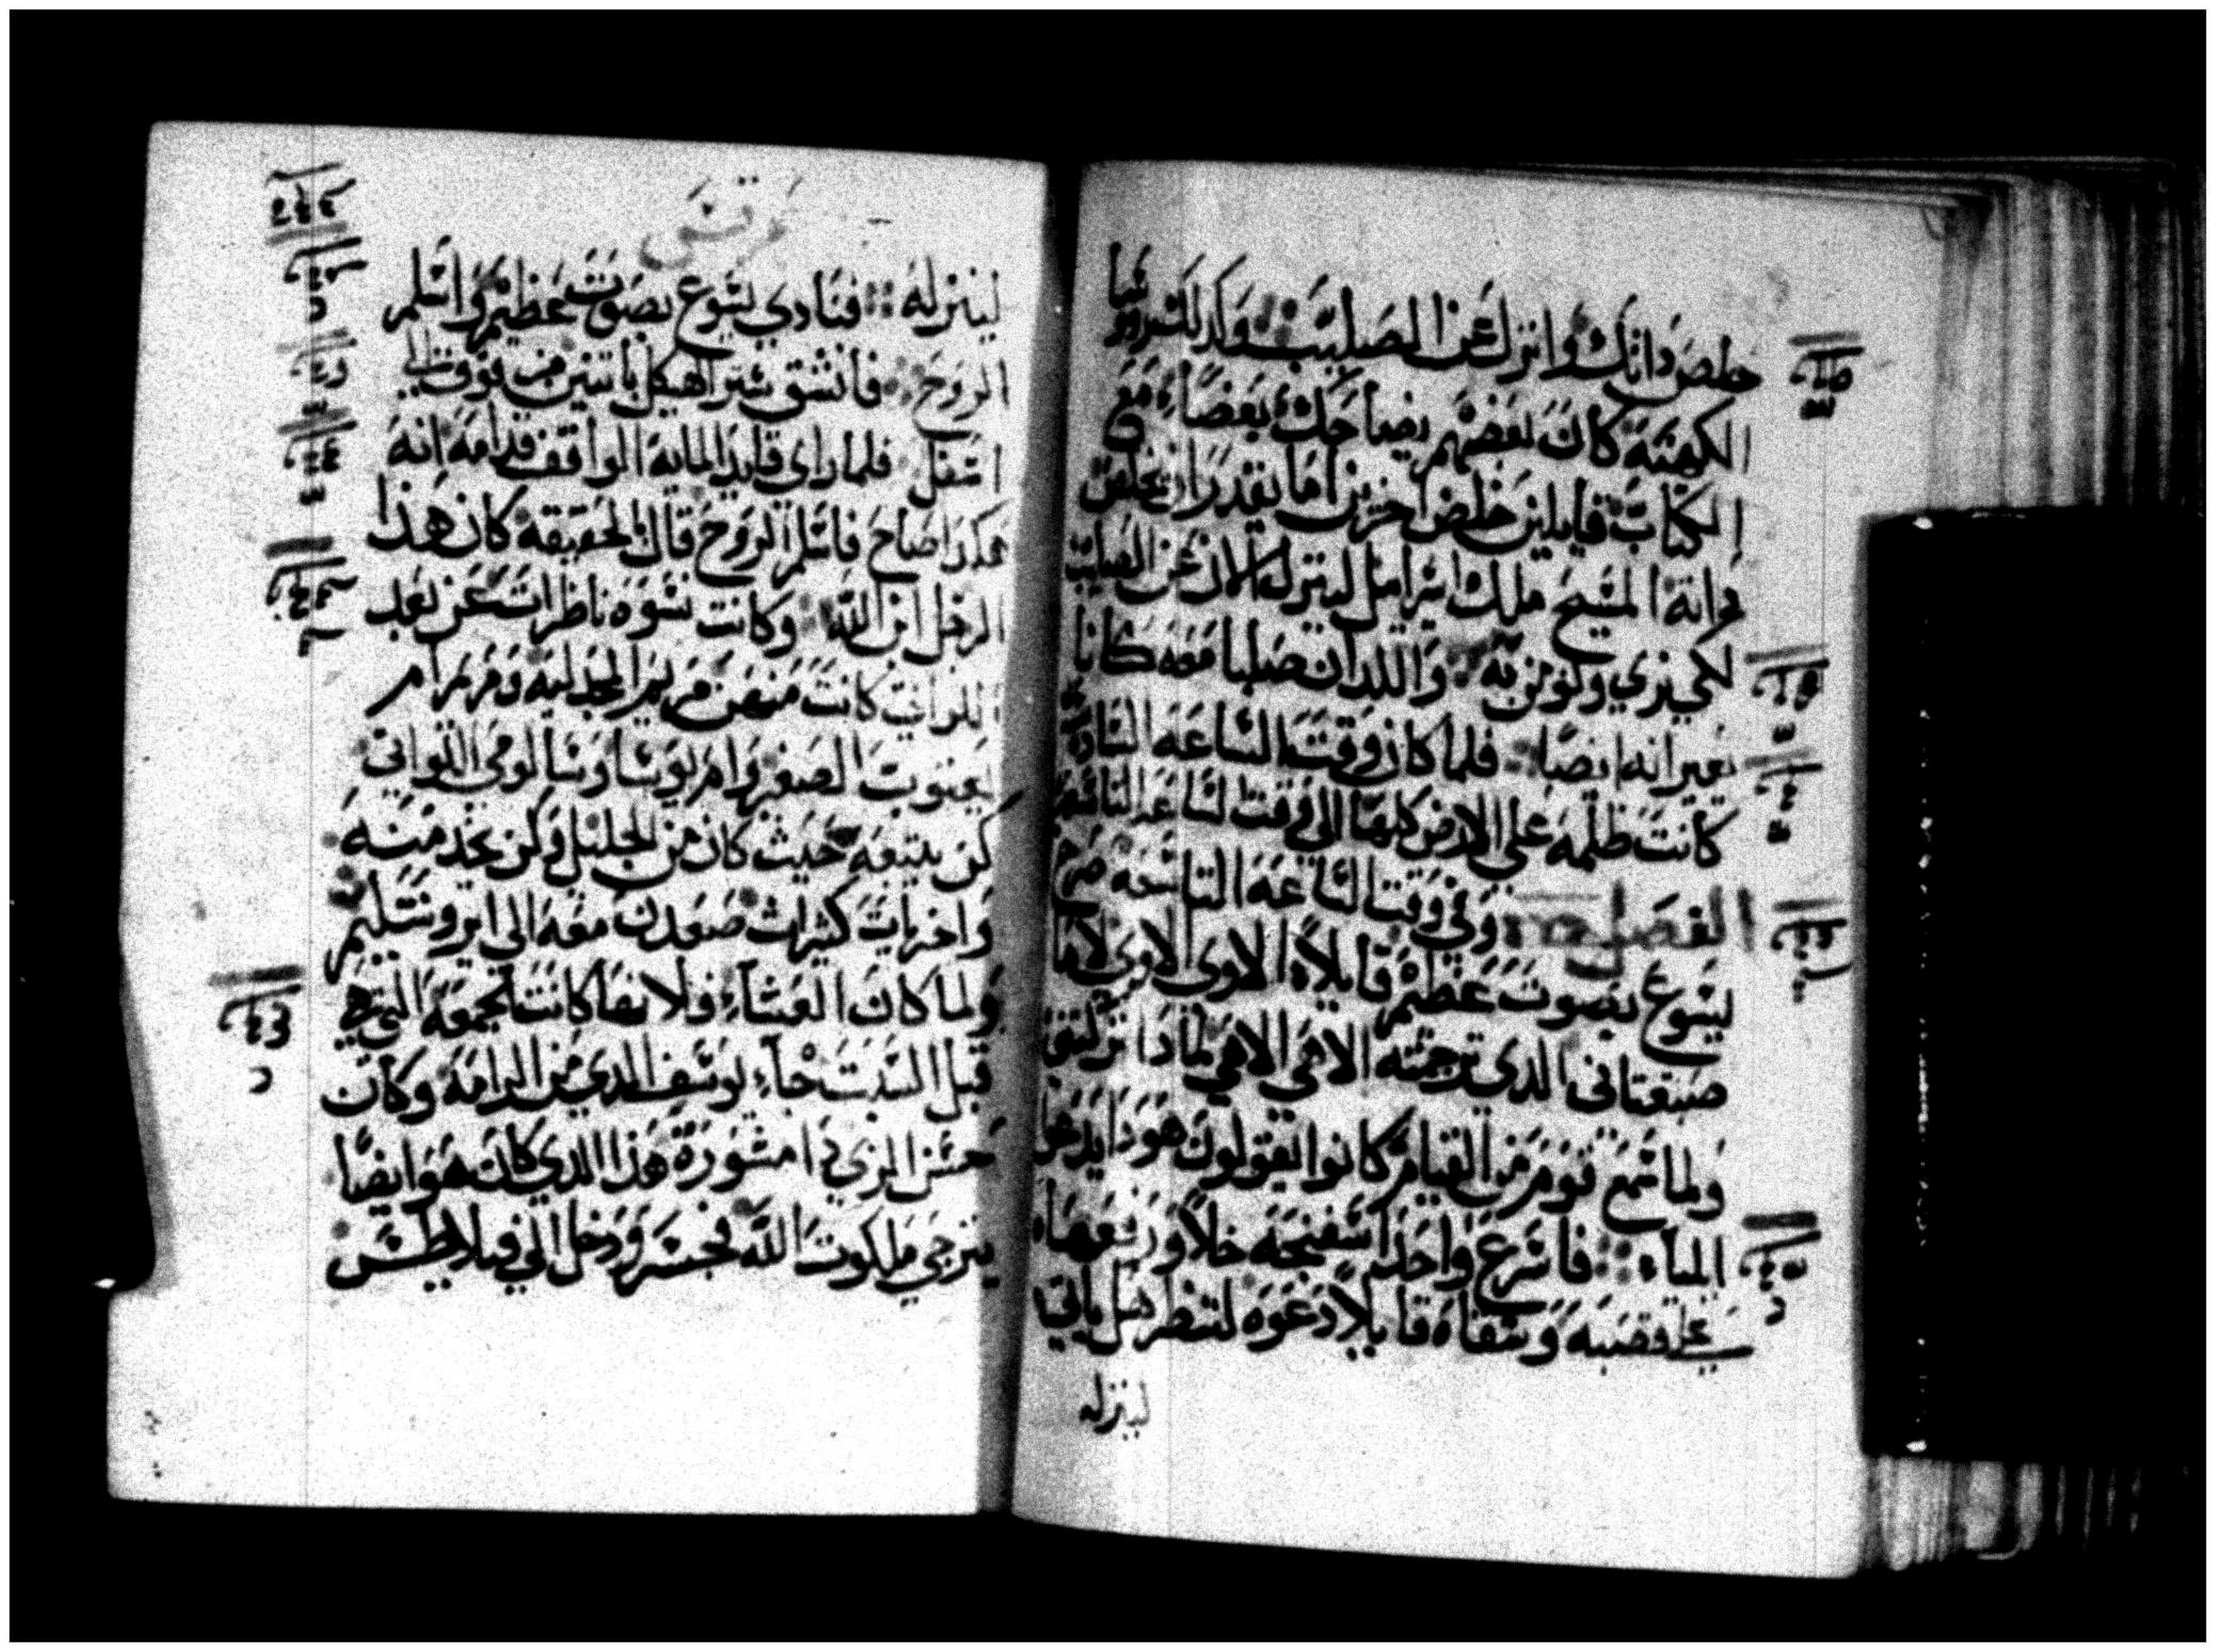 خلص داتك وانزل عن الصليب وكدلك روسا
الكهنه كان بعضهم يضاحك بعضا مع
الكتاب قايلين خلص اخرين اما يقدر ان يخلص
المسيح ملك اسراىيل لينزل الان عن الصليب
لكي نري ونومن به واللدان صلبا معه كانا
يعيرانه ايضا فلما كان وقت الساعه السادسه
كانت ظلمه علي الارض كلها الي وقت الساعه التاسعه
الفصل وفي وقت الساعه التاسعه صرخ
يسوع بصوت عظيم قايلا الاوي الاوي لاما
صبقتاني الدي ترجمته الاهي الاهي لمادا تركتني
ولما سمع قوم من القيام كانوا يقولون هودا يدعوا
الياء فاسرع واحد اسفنجه خلا ورفعها
علي قصبه وسقاه قايلا دعوه لننظر هل ياتي
لينزله
مرقس
لينزله فنادي يسوع بصوت عظيم واسلم
الروح فانشق ستر الهيكل باتنين من فوق الي
اسفل فلما راي قايد المايه الواقف قدامه انه
هكدا صاح فاسلم الروح قال بالحقيقه كان هدا
الرجل ابن الله وكانت نسوه ناظرات عن بعد
اللواتي كانت منهن مريم المجدليه ومريم ام
يعقوب الصغير وام يوسا وسالومي اللواتي
كن يتبعه حيث كان من الجليل وكن يخدمنه
واخريات كثيرات صعدن معه الي ايروشليم
ولما كان العشاء فلانها كانت الجمعه التي هي
قبل السبت جاء يوسف الدي من الرامه وكان
حسن الزي دا مشوره هدا الدي كان هو ايضا
يترجي ملكوت الله فجسر ودخل الي فيلاطس